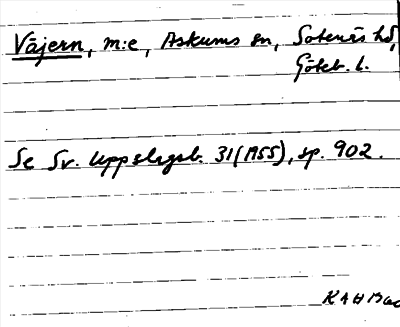 Väjern, m:e, Askums sn, Sotenäs hd,
Göteb. l.
Se Sv. Uppslagsb. 31 (1955), sp. 902.